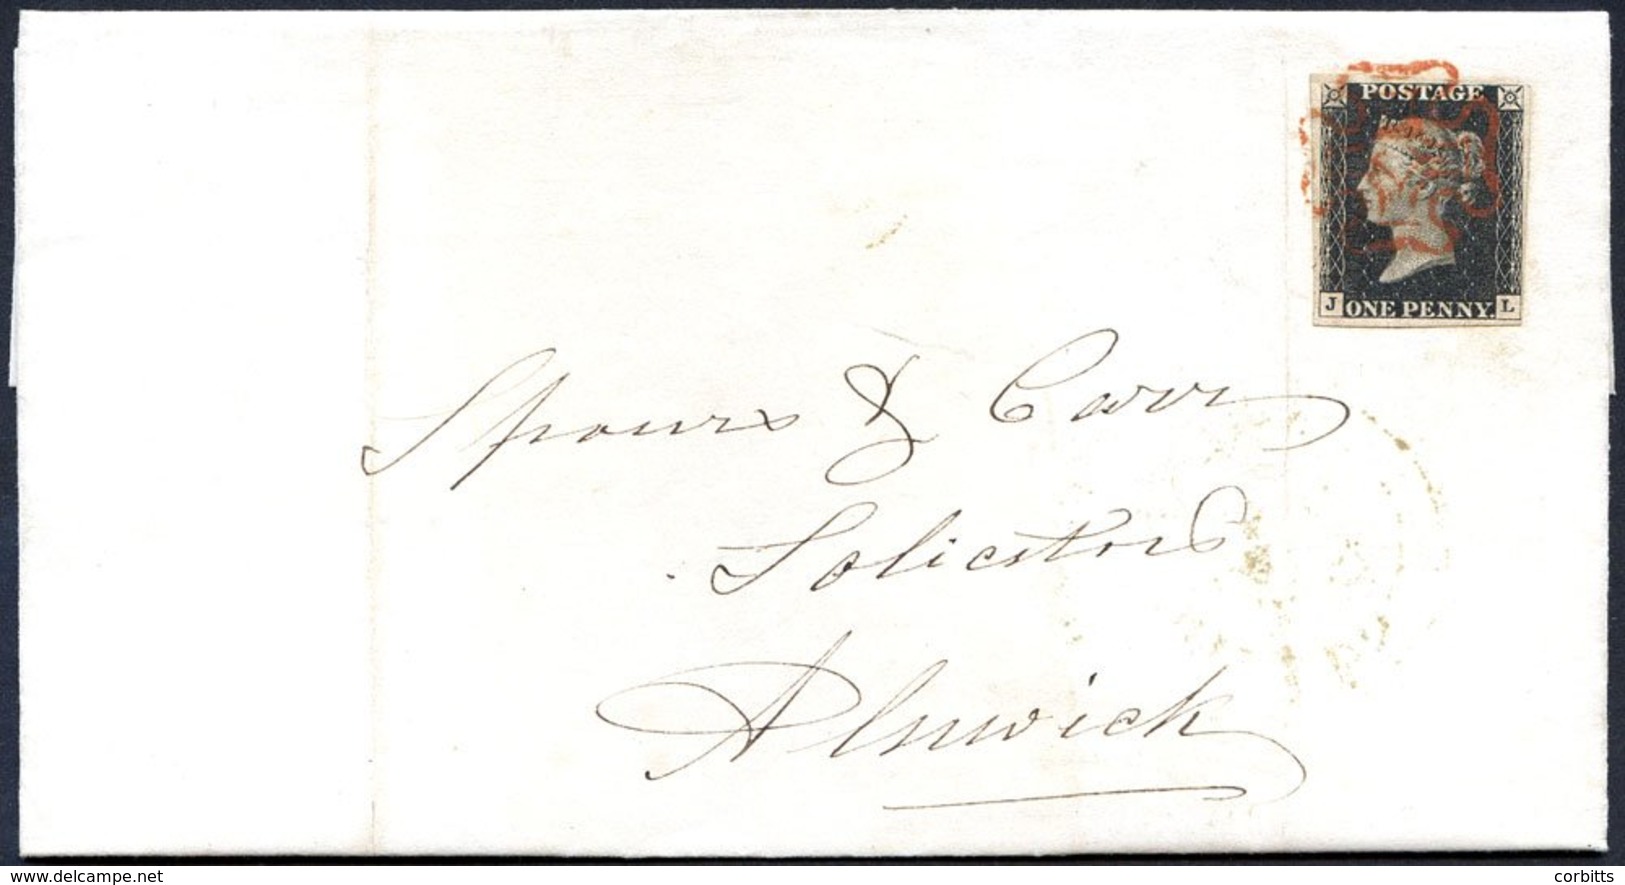 POSTAGE
J ONE PENNY. L
Spours & Carr
Solicitors
Alnwick
www.delcampe.net
corbitts